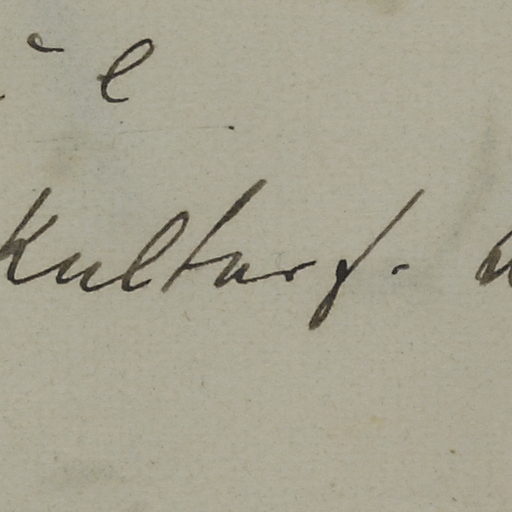 e
Kulturf.